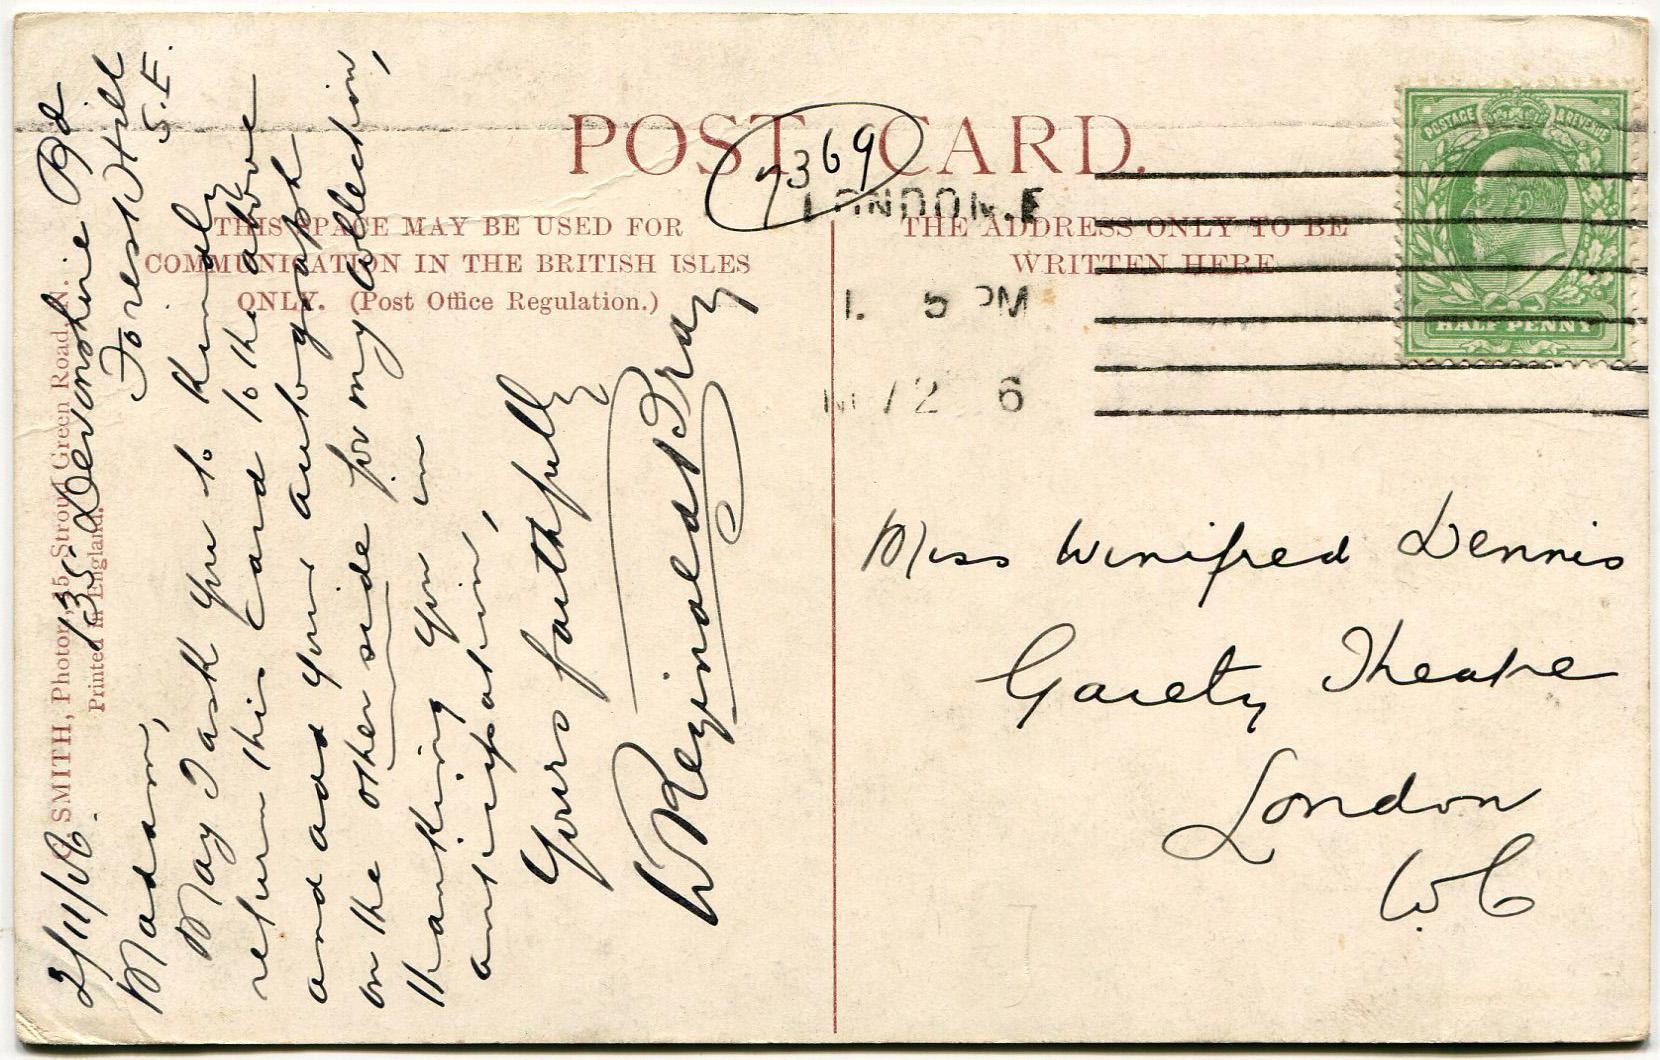 POST CARD.
7369
THIS SPACE MAY BE USED FOR
COMMUNICATION IN THE BRITISH ISLES
ONLY. (Post Office Regulation.)
THE ADDRESS ONLY TO BE
WRITTEN HERE
LONDON. E
5 PM
2 6
POSTAGE & REVENUE
HALF PENNY
SMITH, Photo., Stroud Green Road, N.
Printed in England.
2/11/06. 135 Devonshire Rd
Forest Hill
S.E.
Madam,
May I ask you to kindly
return this card to the above
and add your autograph
on the other side for my collection,
thanking you in
anticipation,
Yours faithfully
W Reginald Bray
Miss Winifred Dennis
Gaiety Theatre
London
W.C